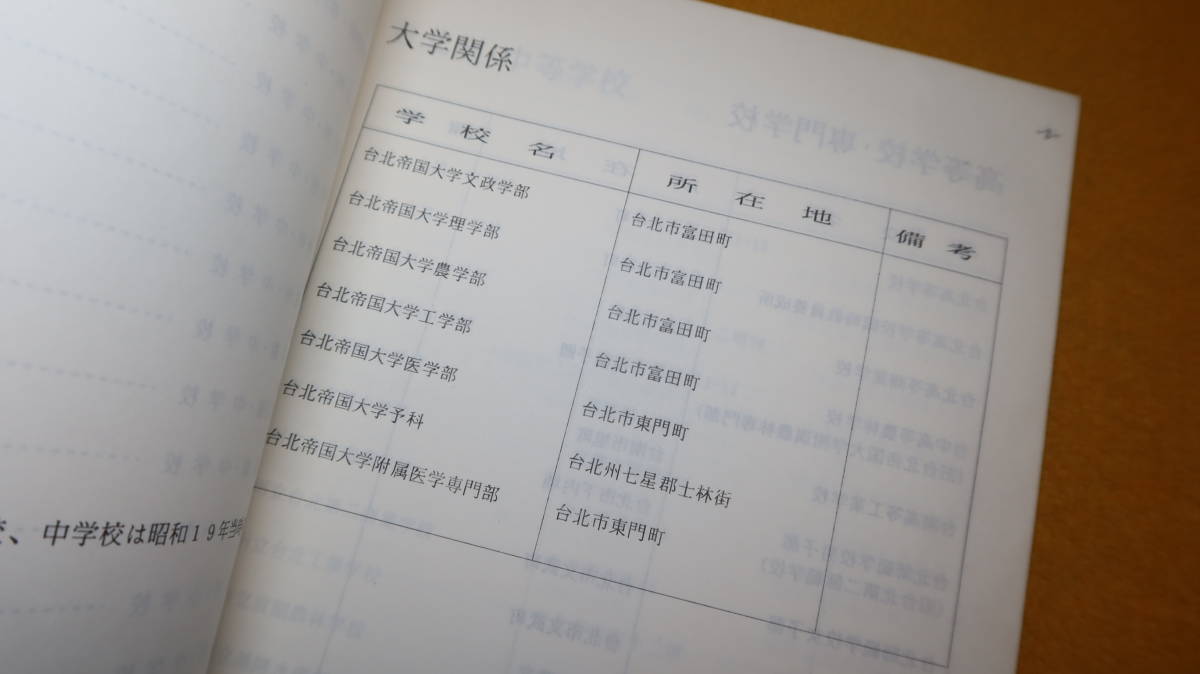 大学関係
学校名 所在地 備考
台北帝国大学文政学部 台北市富田町
台北帝国大学理学部 台北市富田町
台北帝国大学農学部 台北市富田町
台北帝国大学工学部 台北市富田町
台北帝国大学医学部 台北市東門町
台北帝国大学予科 台北州七星郡士林街
台北帝国大学附属医学専門部 台北市東門町
、中学校は昭和19年当